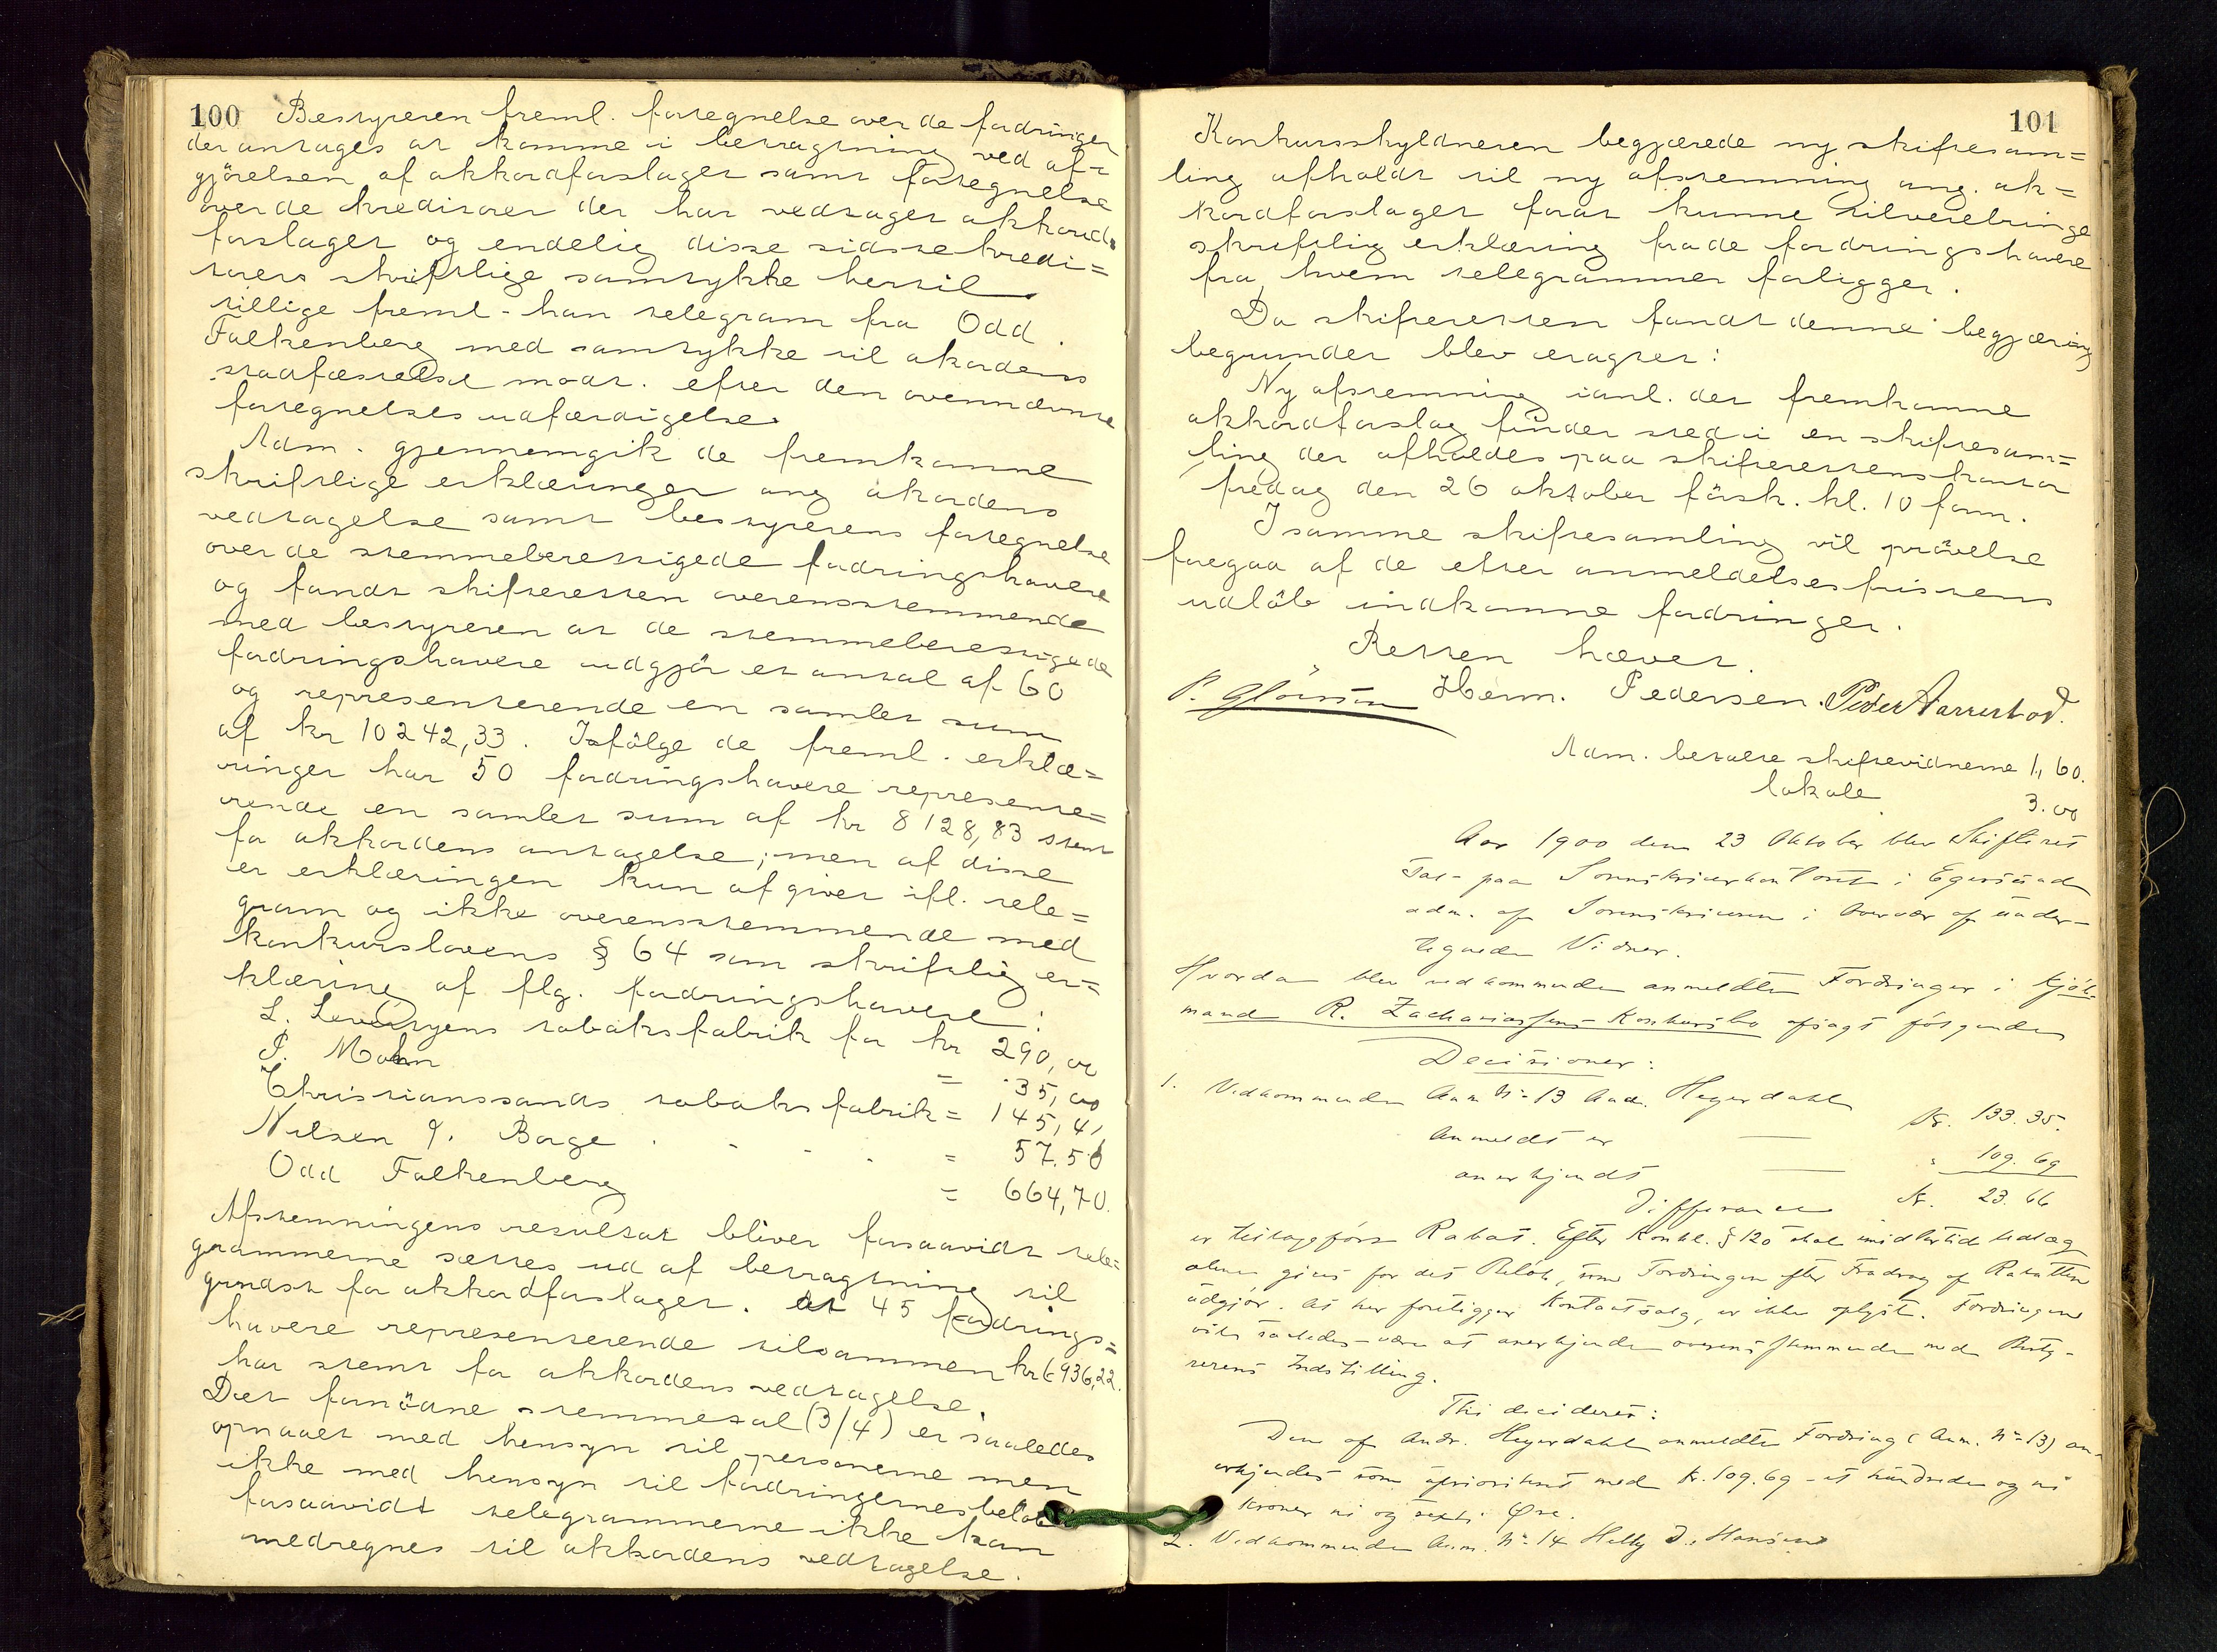 100 Bestyreren freml. fortegnelse over de fordringer
der antages at komme i betragtning ved af=
gjörelsen af akkordforslaget samt fortegnelse
over de kreditorer der har vedtaget akkord=
forslaget og endelig disse sidste kredi=
torers skriftlige samtykke hertil.
tillige freml. han telegram fra Odd
Falkenberg med samtykke til akordens
stadfæstelse modt. efter den ovennævnte
fortegnelses udfærdigelse.
Adm. gjennemgik de fremkomne
skriftlige erklæringer ang akordens
vedtagelse samt bestyrerens fortegnelse
over de stemmeberettigede fordringshavere
og fandt skifteretten overensstemmende
med bestyreren at de stemmeberettigede
fordringshavere udgjör et antal af 60
og representerende en samlet sum
af kr 10242,33. Ifölge de freml. erklæ=
ringer har 50 fordringshavere represente=
rende en samlet sum af kr 8128,83 stemt
for akkordens antagelse; men af disse
er erklæringen kun afgivet ifl. tele=
gram og ikke overensstemmende med
konkurslovens § 64 som skriftlig er=
klæring af flg. fordringshavere:
L. Levertzens tobaksfabrik for kr 290,00
P. Mohn = 35,00
Christianssands tobaksfabrik = 145,41
Nilsen &. Borge . - - . = 57.50
Odd Falkenberg = 664,70.
Afstemningens resultat bliver forsaavidt tele=
grammerne sættes ud af betragtning til
gundst for akkordforslaget. At 45 fordrings=
havere representerende tilsammen kr 6936,22.
har stemt for akkordens vedtagelse.
Det fornödne stemmetal (3/4) er saaledes
opnaaet med hensyn til personerne men
ikke med hensyn til fordringernes belöb
forsaavidt telegrammerne ikke kan
medregnes til akkordens vedtagelse.
101
Konkursskyldneren begjærede ny skiftesam=
ling afholdt til ny afstemning ang. ak=
kordforslaget forat kunne tilveiebringe
skriftlig erklæring fra de fordringshavere
fra hvem telegrammer forligger.
Da skifteretten fandt denne begjæring
begrundet blev eragtet:
Ny afstemning ianl. det fremkomne
akkordforslag finder sted i en skiftesam=
ling der afholdes paa skifterettens kontor
fredag den 26 oktober förstk. kl. 10 form.
I samme skiftesamling vil prövelse
foregaa af de efter anmeldelsesfristens
udlöb indkomne fordringer.
Retten hævet.
Herm. Pedersen. Peder Aarrestad.
Adm. betalte skiftevidnerne 1,60.
lokale 3.00
Aar 1900 den 23 Oktober blev Skifteret
sat paa Sorenskriverkontoret i Egersund
adm. af Sorenskriveren i Overvær af under-
tegnede Vidner.
Hvorda blev vedkommende anmeldte Fordringer i Kjöb-
mand R. Zachariassens Konkursbo afsagt fölgende
Decisioner:
1. Vedkommende Anm. No 13 Andr. Heyerdahl
Anmeldt er — Kr. 133.35.
anerkjendt — " 109.69
Differance Kr. 23.66
er tillageförte Rabat. Efter Konkl. § 120 skal imidlertid Udlæg
alene gives for det Belöb, som Fordringen efter Fradrag af Rabatten
udgjör. At her foreligger Kontantsalg, er ikke oplyst. Fordringen
vil saaledes være at anerkjende overensstemmende med Besty-
rerens Indstilling.
Thi decideres:
Den af Andr. Heyerdahl anmeldte Fordring (Anm. No 13) an-
erkjendes som uprioriteret med Kr. 109.69 - et hundrede og ni
Kroner ni og sexti Öre.
2. Vedkommende Anm. No 14 Helly J. Hansen